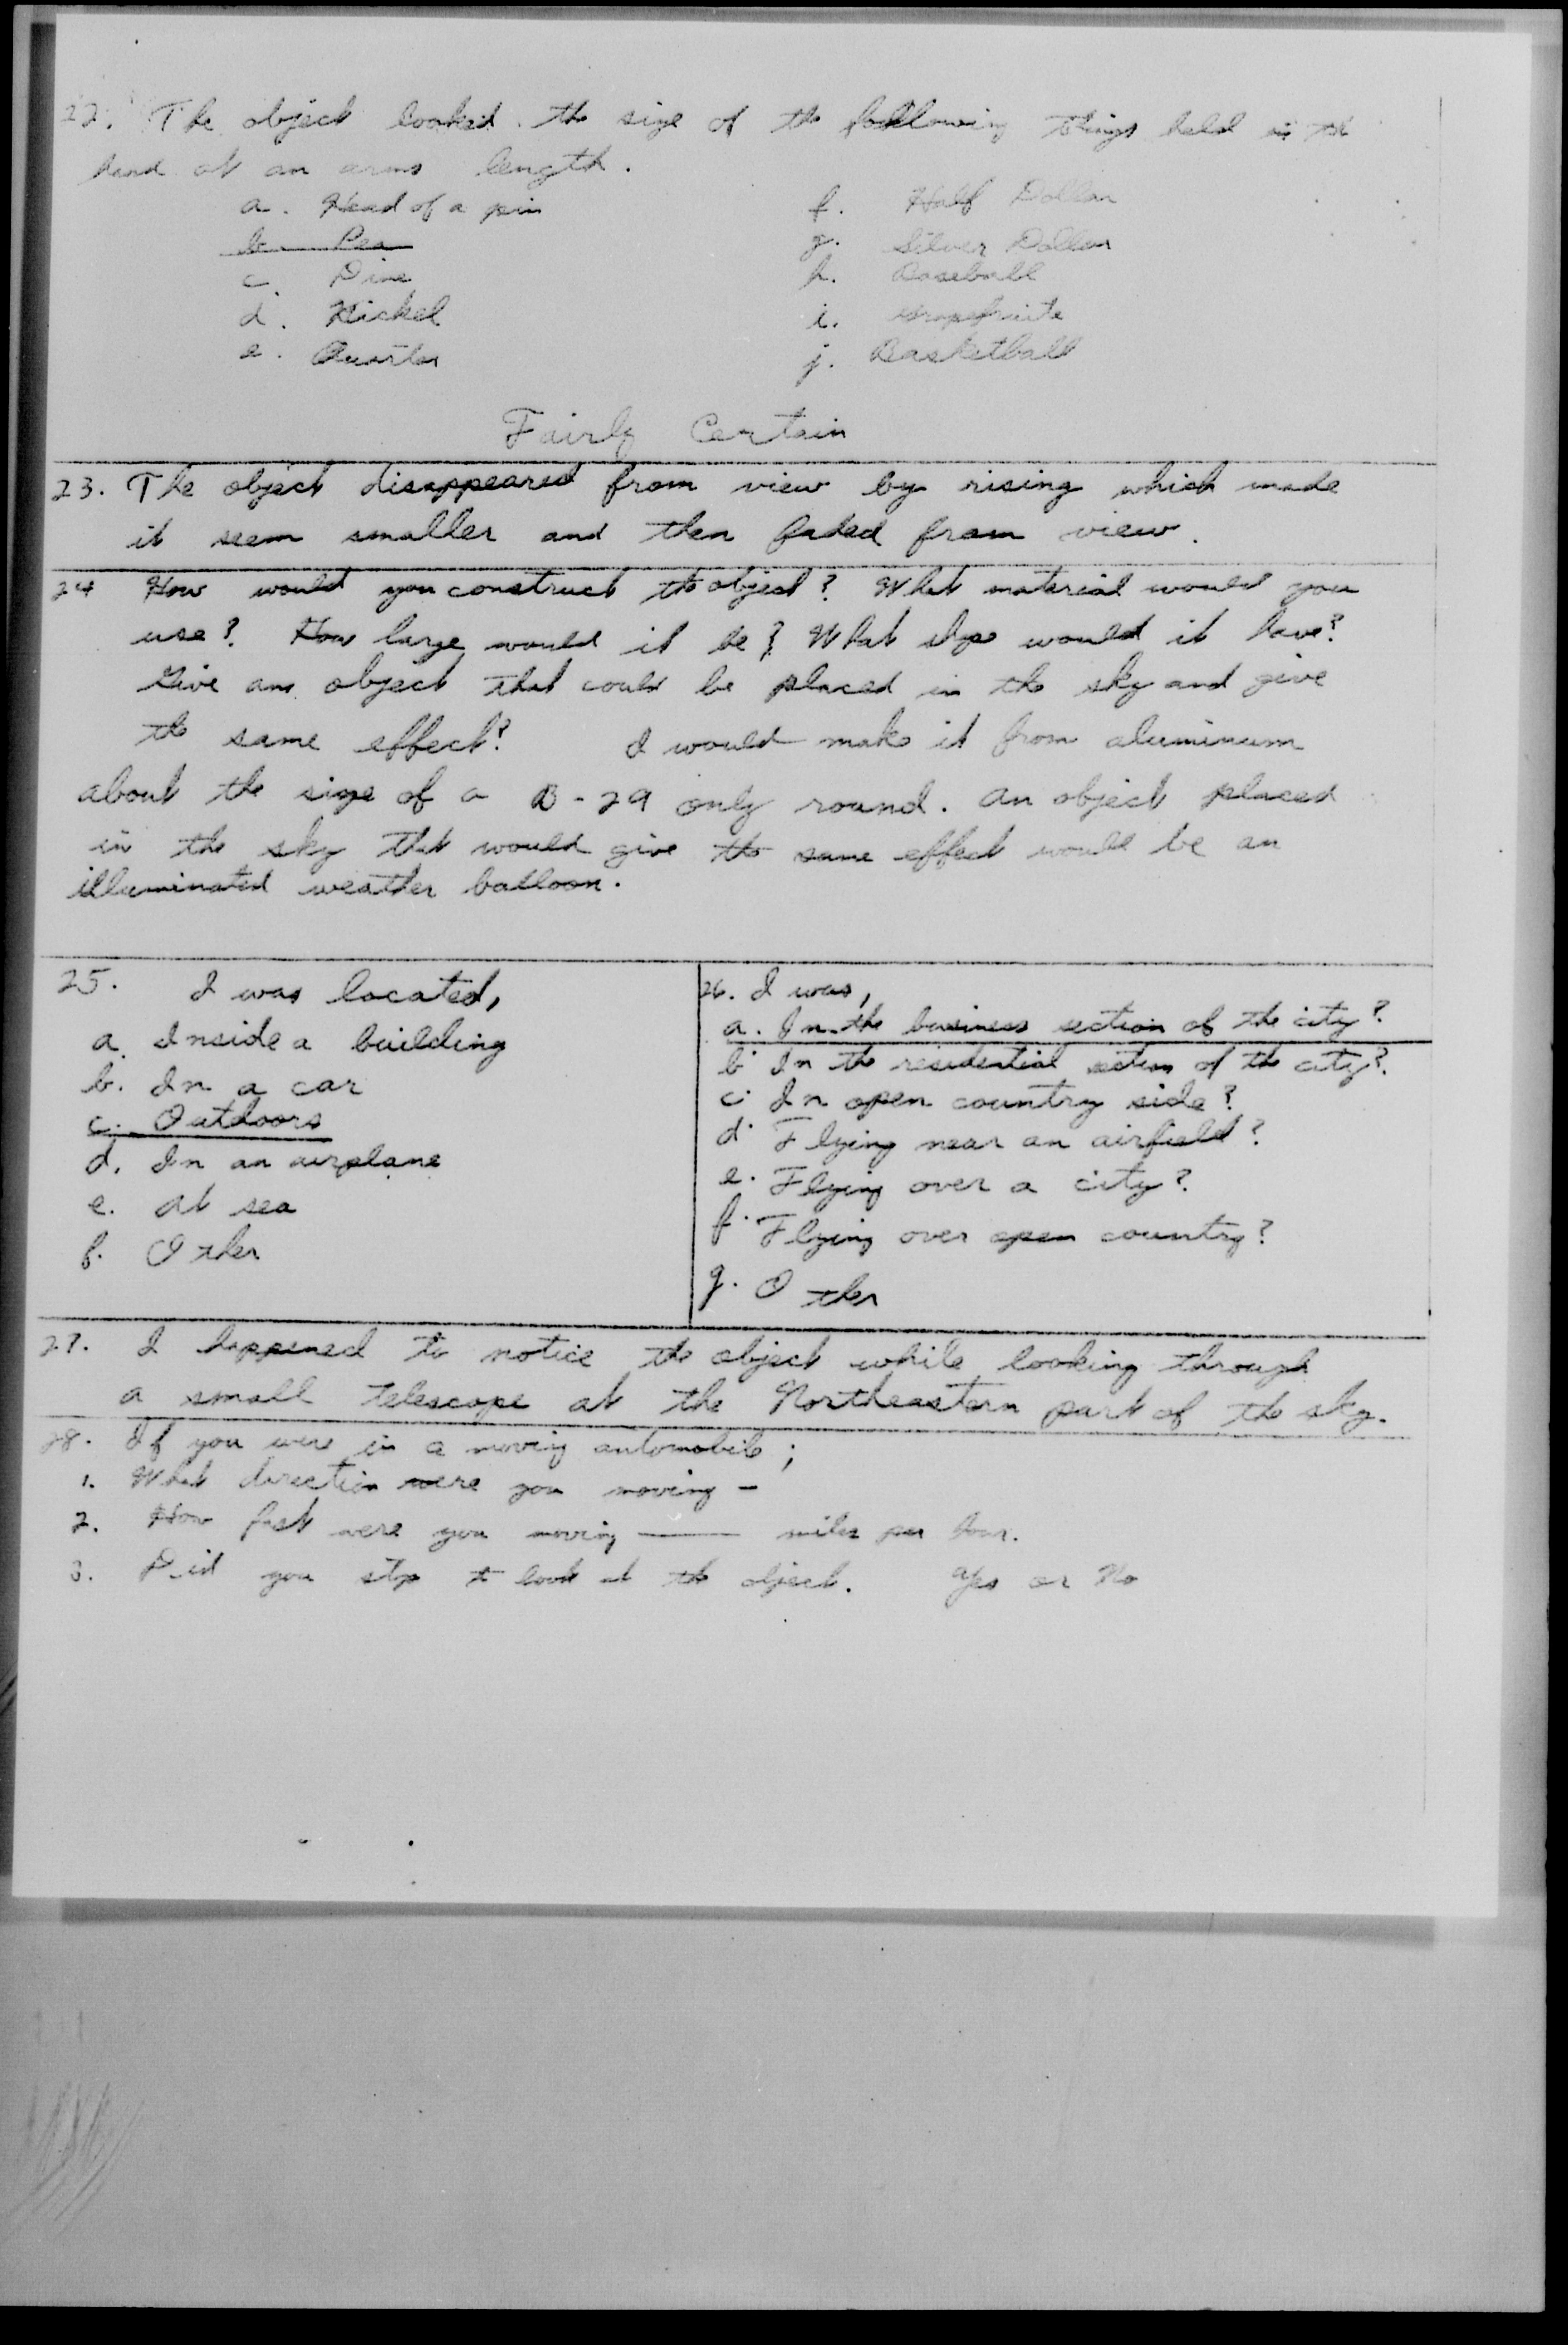 22. The object looked the size of the following things held in the
hand at an arms length.
a. Head of a pin
b. Pea
c. Dime
d. Nickel
e. Quarter
f. Half Dollar
g. Silver Dollar
h. Baseball
i. Grapefruite
j. Basketball
Fairly Certain
23. The object disappeared from view by rising which made
it seem smaller and then faded from view.
24 How would you construct the object? What material would you
use? How large would it be? What would it have?
Give an object that could be placed in the sky and give
the same effect? I would make it from aluminum
about the size of a B-29 only round. An object placed
in the sky that would give the same effect would be an
illuminated weather balloon.
25. I was located,
a. Inside a building
b. In a car
c. Outdoors
d. In an airplane
e. At sea
f. Other
26. I was,
a. In the business section of the city?
b. In the residential section of the city?
c. In open country side?
d. Flying near an airfield?
e. Flying over a city?
f. Flying over open country?
g. Other
27. I happened to notice the object while looking through
a small telescope at the Northeastern part of the sky.
28. If you were in a moving automobile;
1. What direction were you moving -
2. How fast were you moving —— miles per hour.
3. Did you stop to look at the object. Yes or No